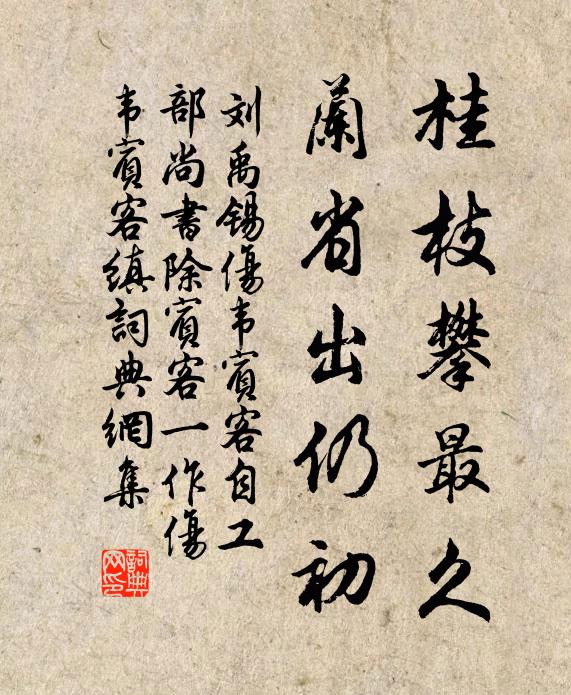 桂枝攀最久
蘭省出仍初
刘禹锡傷韦賓客自工
部尚書除賓客一作傷
韦賓客縝詞典網集
詞典
网印